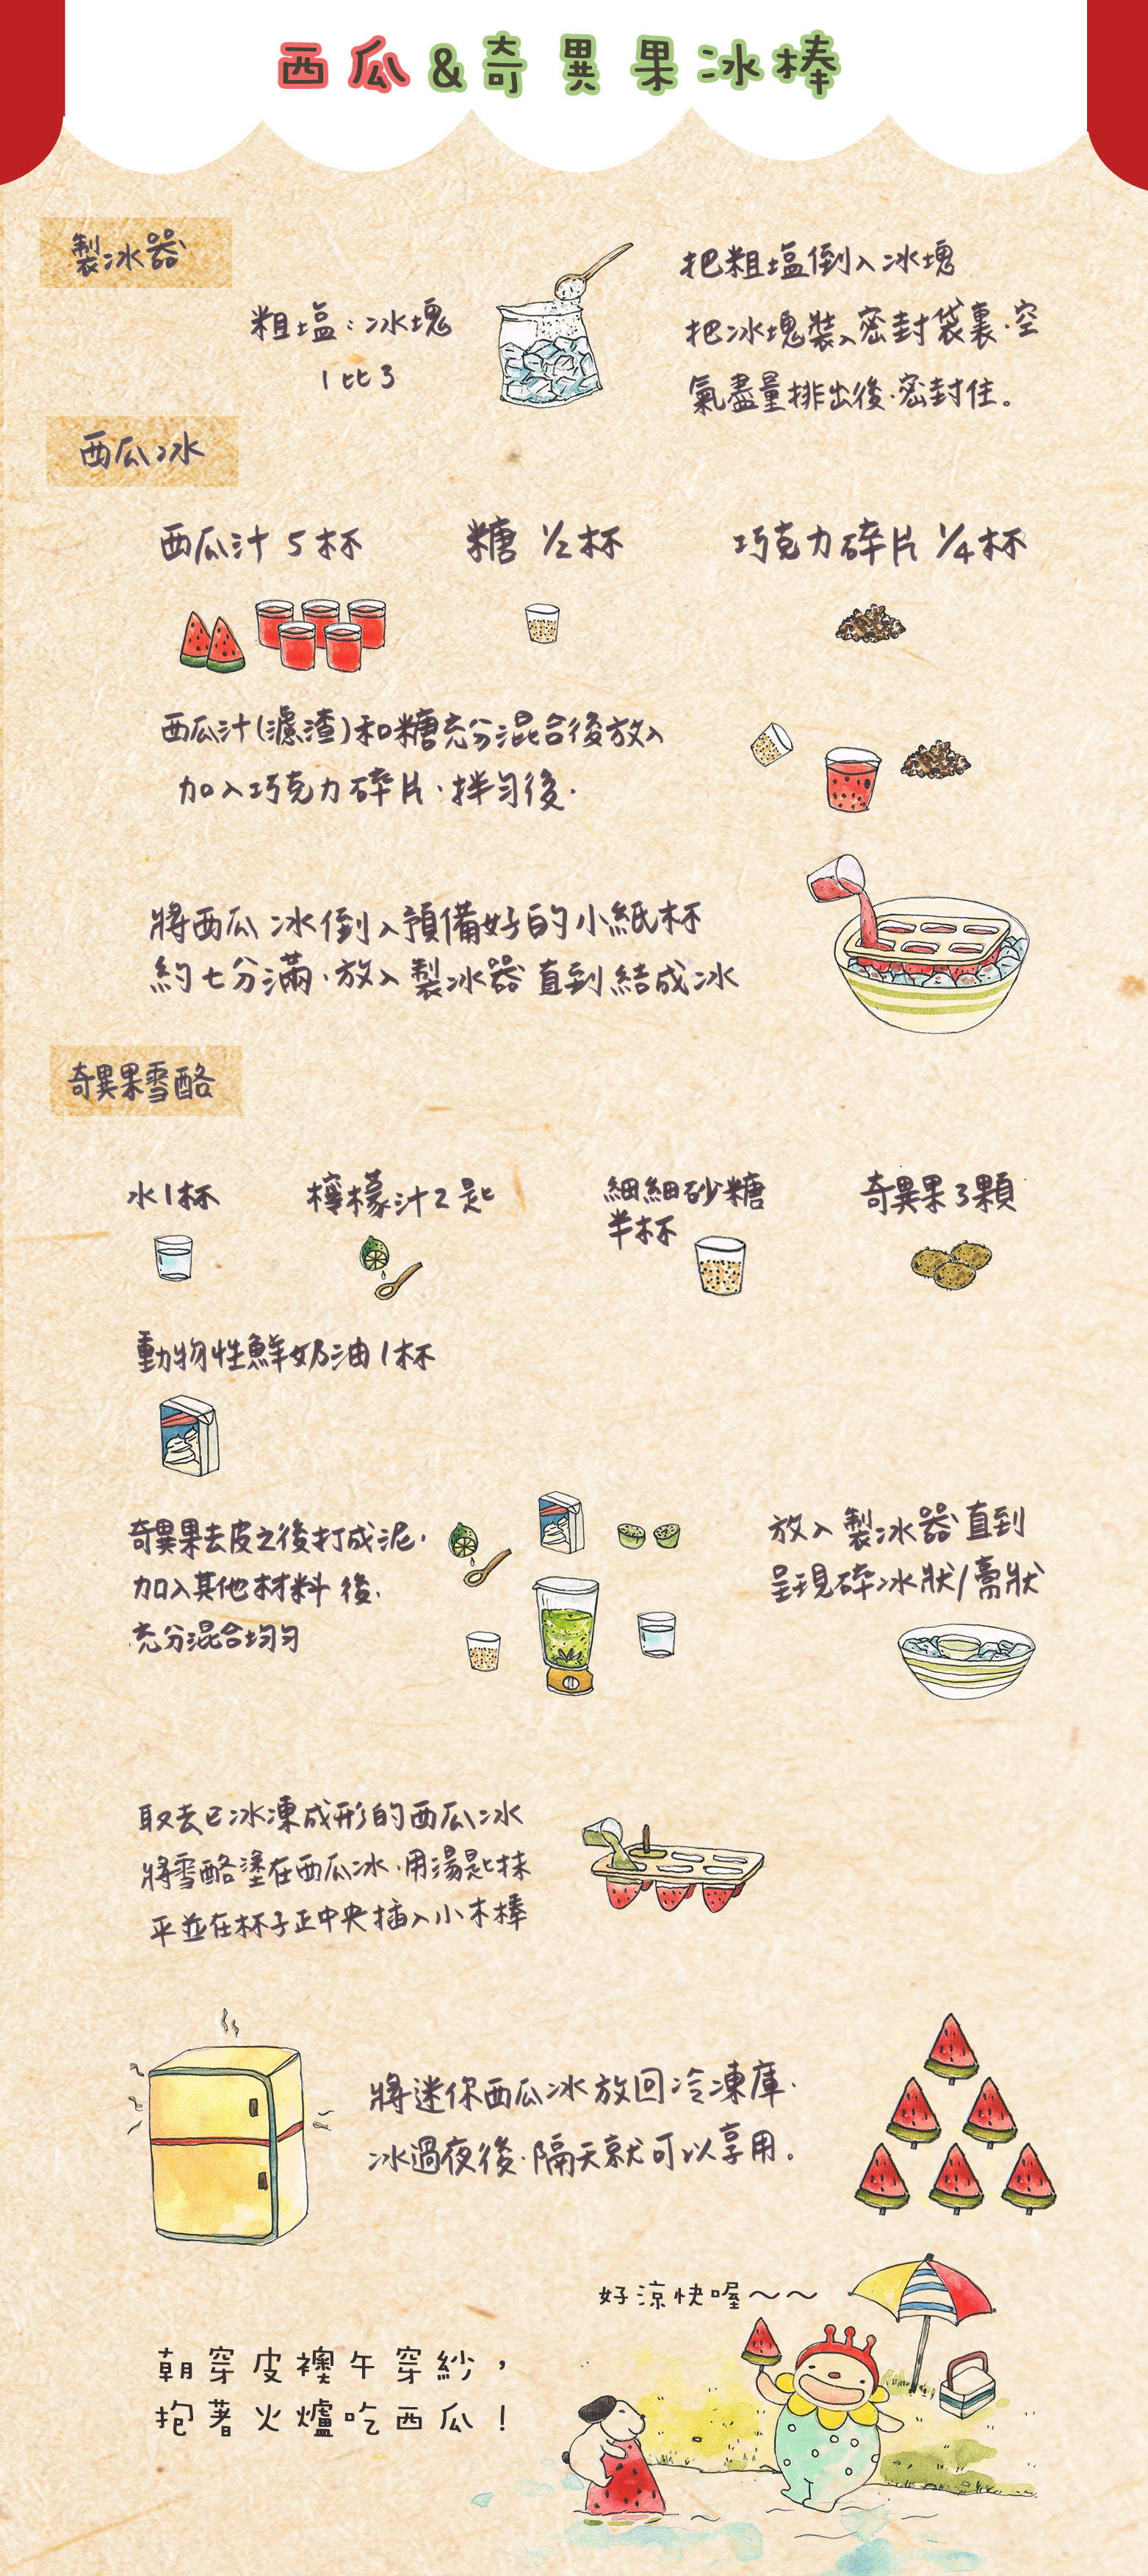 西瓜&奇異果冰棒
製冰器
粗塩:冰塊
1比3
把粗塩倒入冰塊
把冰塊裝入密封袋裏·空
氣盡量排出後·密封住。
西瓜冰
西瓜汁 5杯
糖 1/2杯
巧克力碎片 1/4杯
西瓜汁(濾渣)和糖充分混合後放入
加入巧克力碎片·拌勻後·
將西瓜冰倒入預備好的小紙杯
約七分滿·放入製冰器 直到結成冰
奇異果雪酪
水1杯
檸檬汁2匙
細細砂糖
半杯
奇異果3顆
動物性鮮奶油1杯
奇異果去皮之後打成泥·
加入其他材料後·
充分混合均勻
放入製冰器直到
呈現碎冰狀/膏狀
取去已冰凍成形的西瓜冰
將雪酪塗在西瓜冰·用湯匙抹
平並在杯子正中央插入小木棒
將迷你西瓜冰放回冷凍庫·
冰過夜後·隔天就可以享用。
好涼快喔～～
朝穿皮襖午穿紗,
抱著火爐吃西瓜!